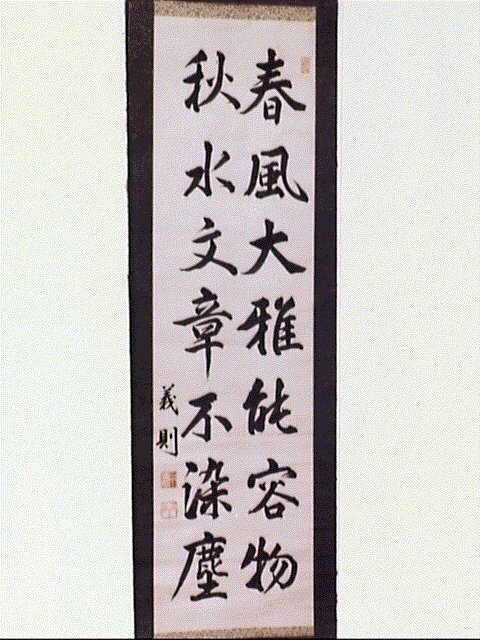 春風大雅能容物
秋水文章不染塵
義則